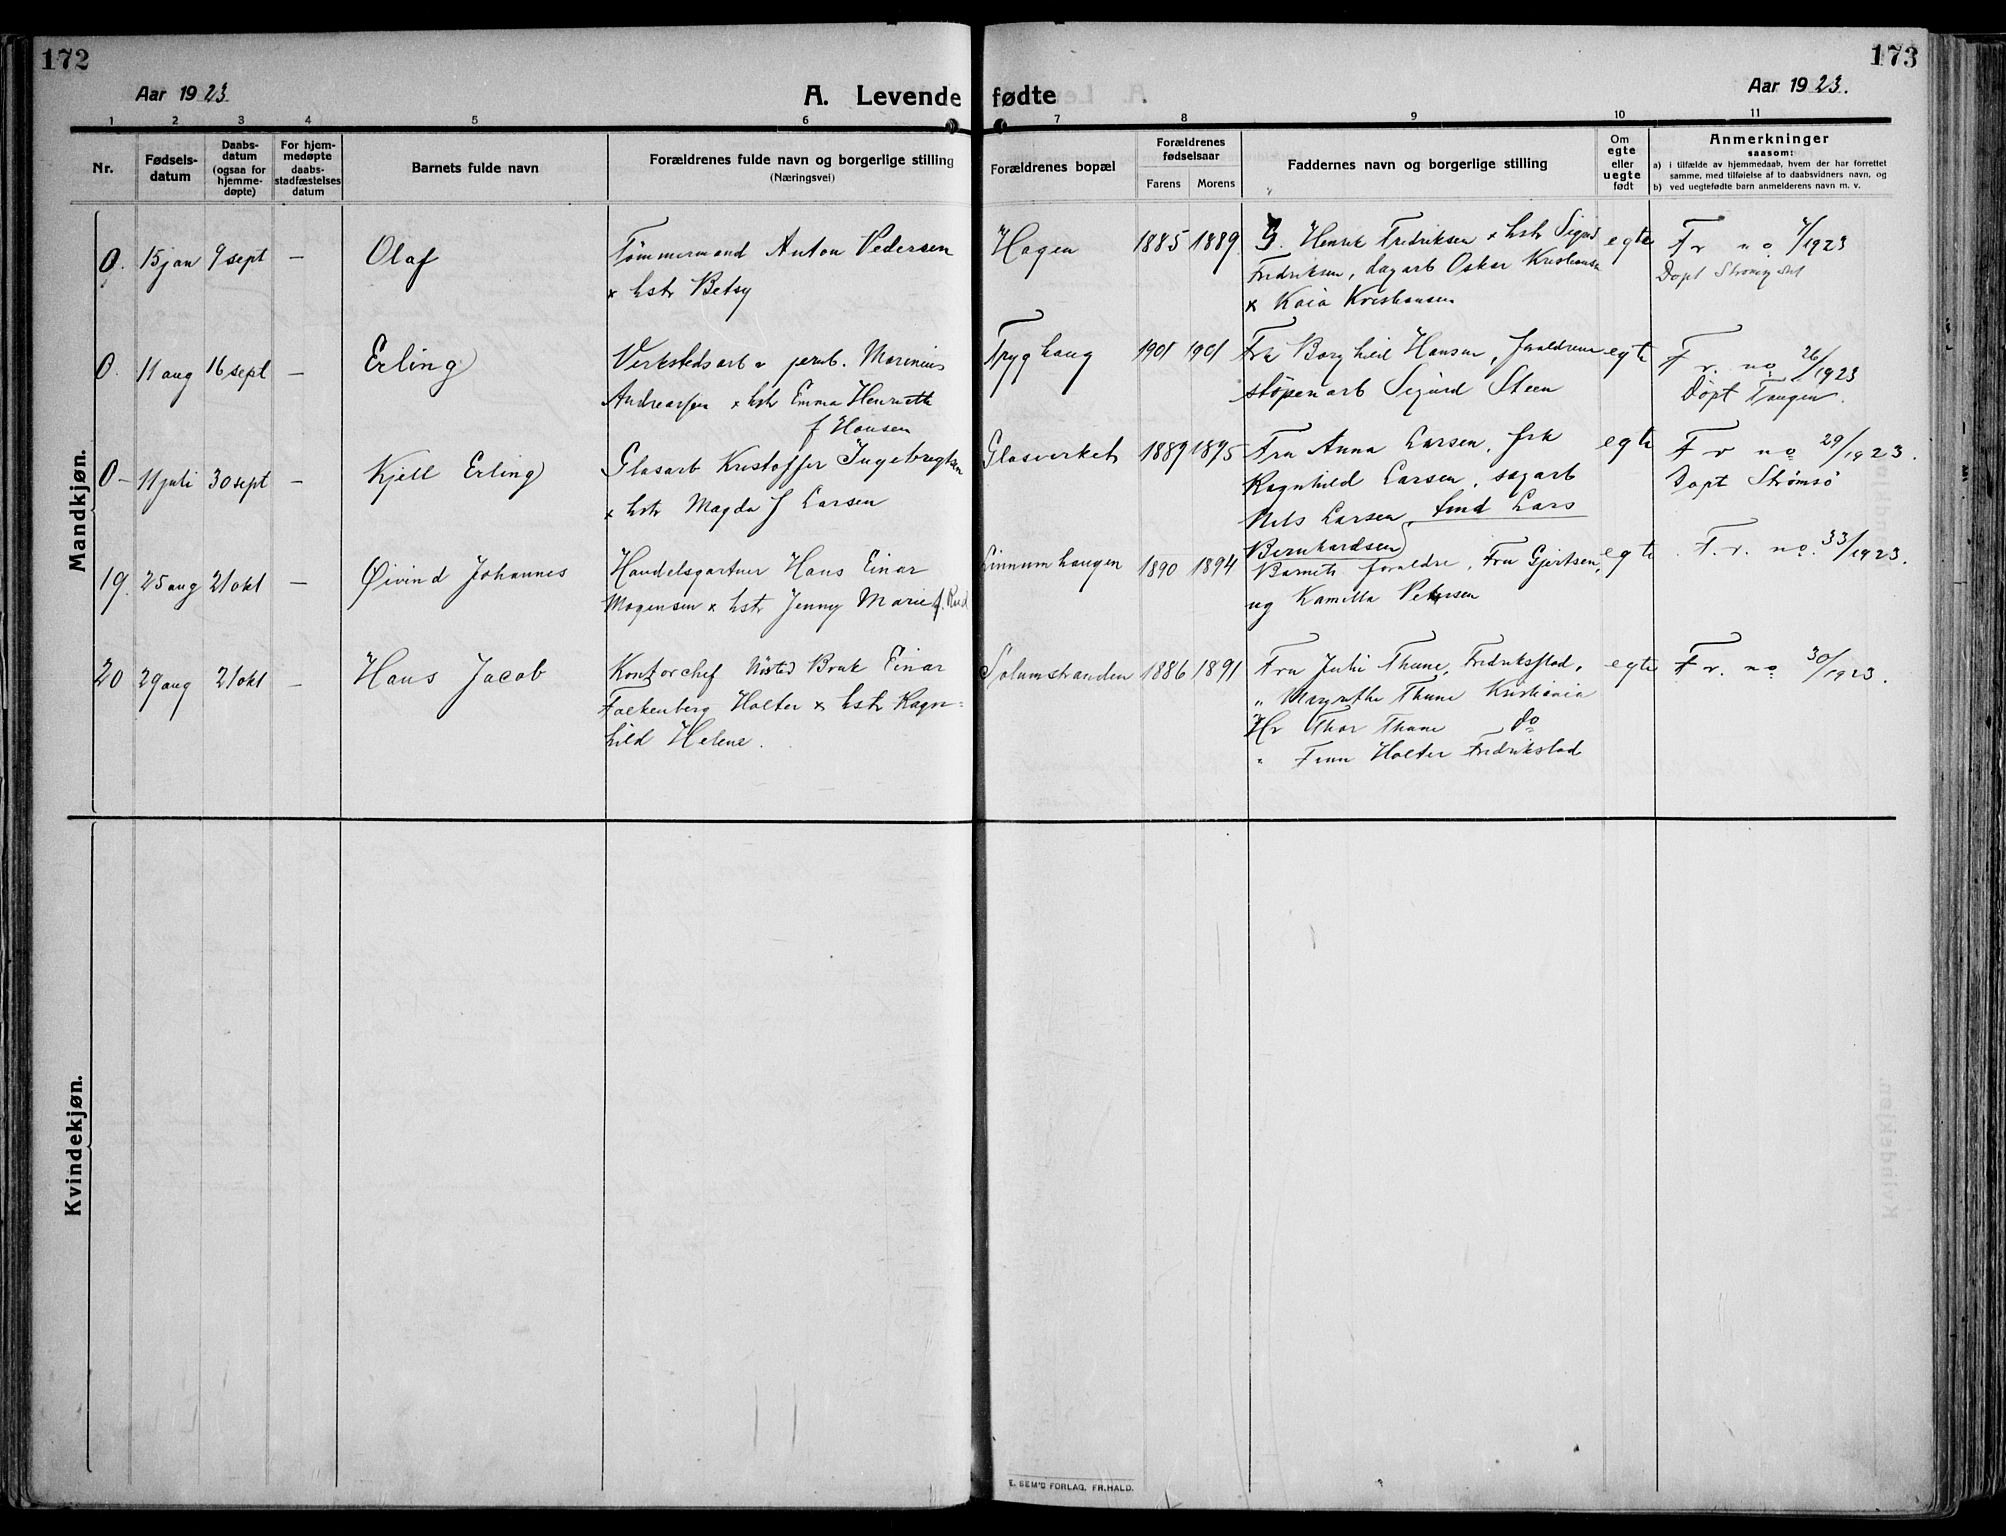 172
173
Aar 1923
A. Levende fødte
Aar 1923.
1 2 3 4 5 6 7 8 9 10 11
Nr.
Fødsels-
datum
Daabs-
datum
(ogsaa for
hjemme-
døpte)
For hjem-
medøpte
daabs-
stadfæstelses
datum
Barnets fulde navn
Forældrenes fulde navn og borgerlige stilling
(Næringsvei)
Forældrenes bopæl
Forældrenes
fødselsaar
Farens Morens
Faddernes navn og borgerlige stilling
Om
egte
eller
uegte
født
Anmerkninger
saasom:
a) i tilfælde av hjemmedaab, hvem der har forrettet
samme, med tilføielse av to daabsvidners navn, og
b) ved uegtefødte barn anmelderens navn m. v.
Mandkjøn.
0. 15 jan 9 sept – Olaf
Tømmermand Anton Pedersen
x hstr Betsy
Hagen 1885 1889
G. Henrik Fredriksen x hstr Sigrid
Fredriksen, dagarb Oskar Kristiansen
x Kaia Kristiansen
egte
F r no 7/1923
Døpt
0. 11 aug 16 sept – Erling
Verkstedsarb v jernb. Marinius
Andreassen x hstr Emma Henriette
f Hansen
Tryghaug 1901 1901
Frk Borghild Hansen, foraldrene
støpenarb Sigurd Steen
egte
F r. no 26/1923
Døpt Tangen.
0– 11 juli 30 sept – Kjell Erling
Glasarb Kristoffer Ingebregtsen
x hstr Magda f Larsen
Glasverket 1889 1895
Fru Anna Larsen, frk
Ragnhild Larsen, sagarb
Nils Larsen, smd Lars
Bernhardsen
egte
F r no 29/1923.
Døpt Strømsø
19. 25 aug 21 okt – Øivind Johannes
Handelsgartner Hans Einar
Mogensen x hstr Jenny Marie f. Rud
Linnumhaugen 1890 1894
Barnets foraldre, Fru Gjertsen,
og Kamilla Petersen
egte
F. r. no. 33/1923.
20 29 aug 21 okt – Hans Jacob
Kontorchef Nøsted Bruk Einar
Falkenberg Holter x hstr Ragn-
hild Helene.
Solumstranden 1886 1891
Fru Julie Thune, Fredriksstad,
" Margrethe Thune Kristiania
Hr Thor Thune do
" Finn Holter Fredrikstad
egte
F r. no 30/1923.
Kvindekjøn.
E. SEM'S FORLAG, FR.HALD.